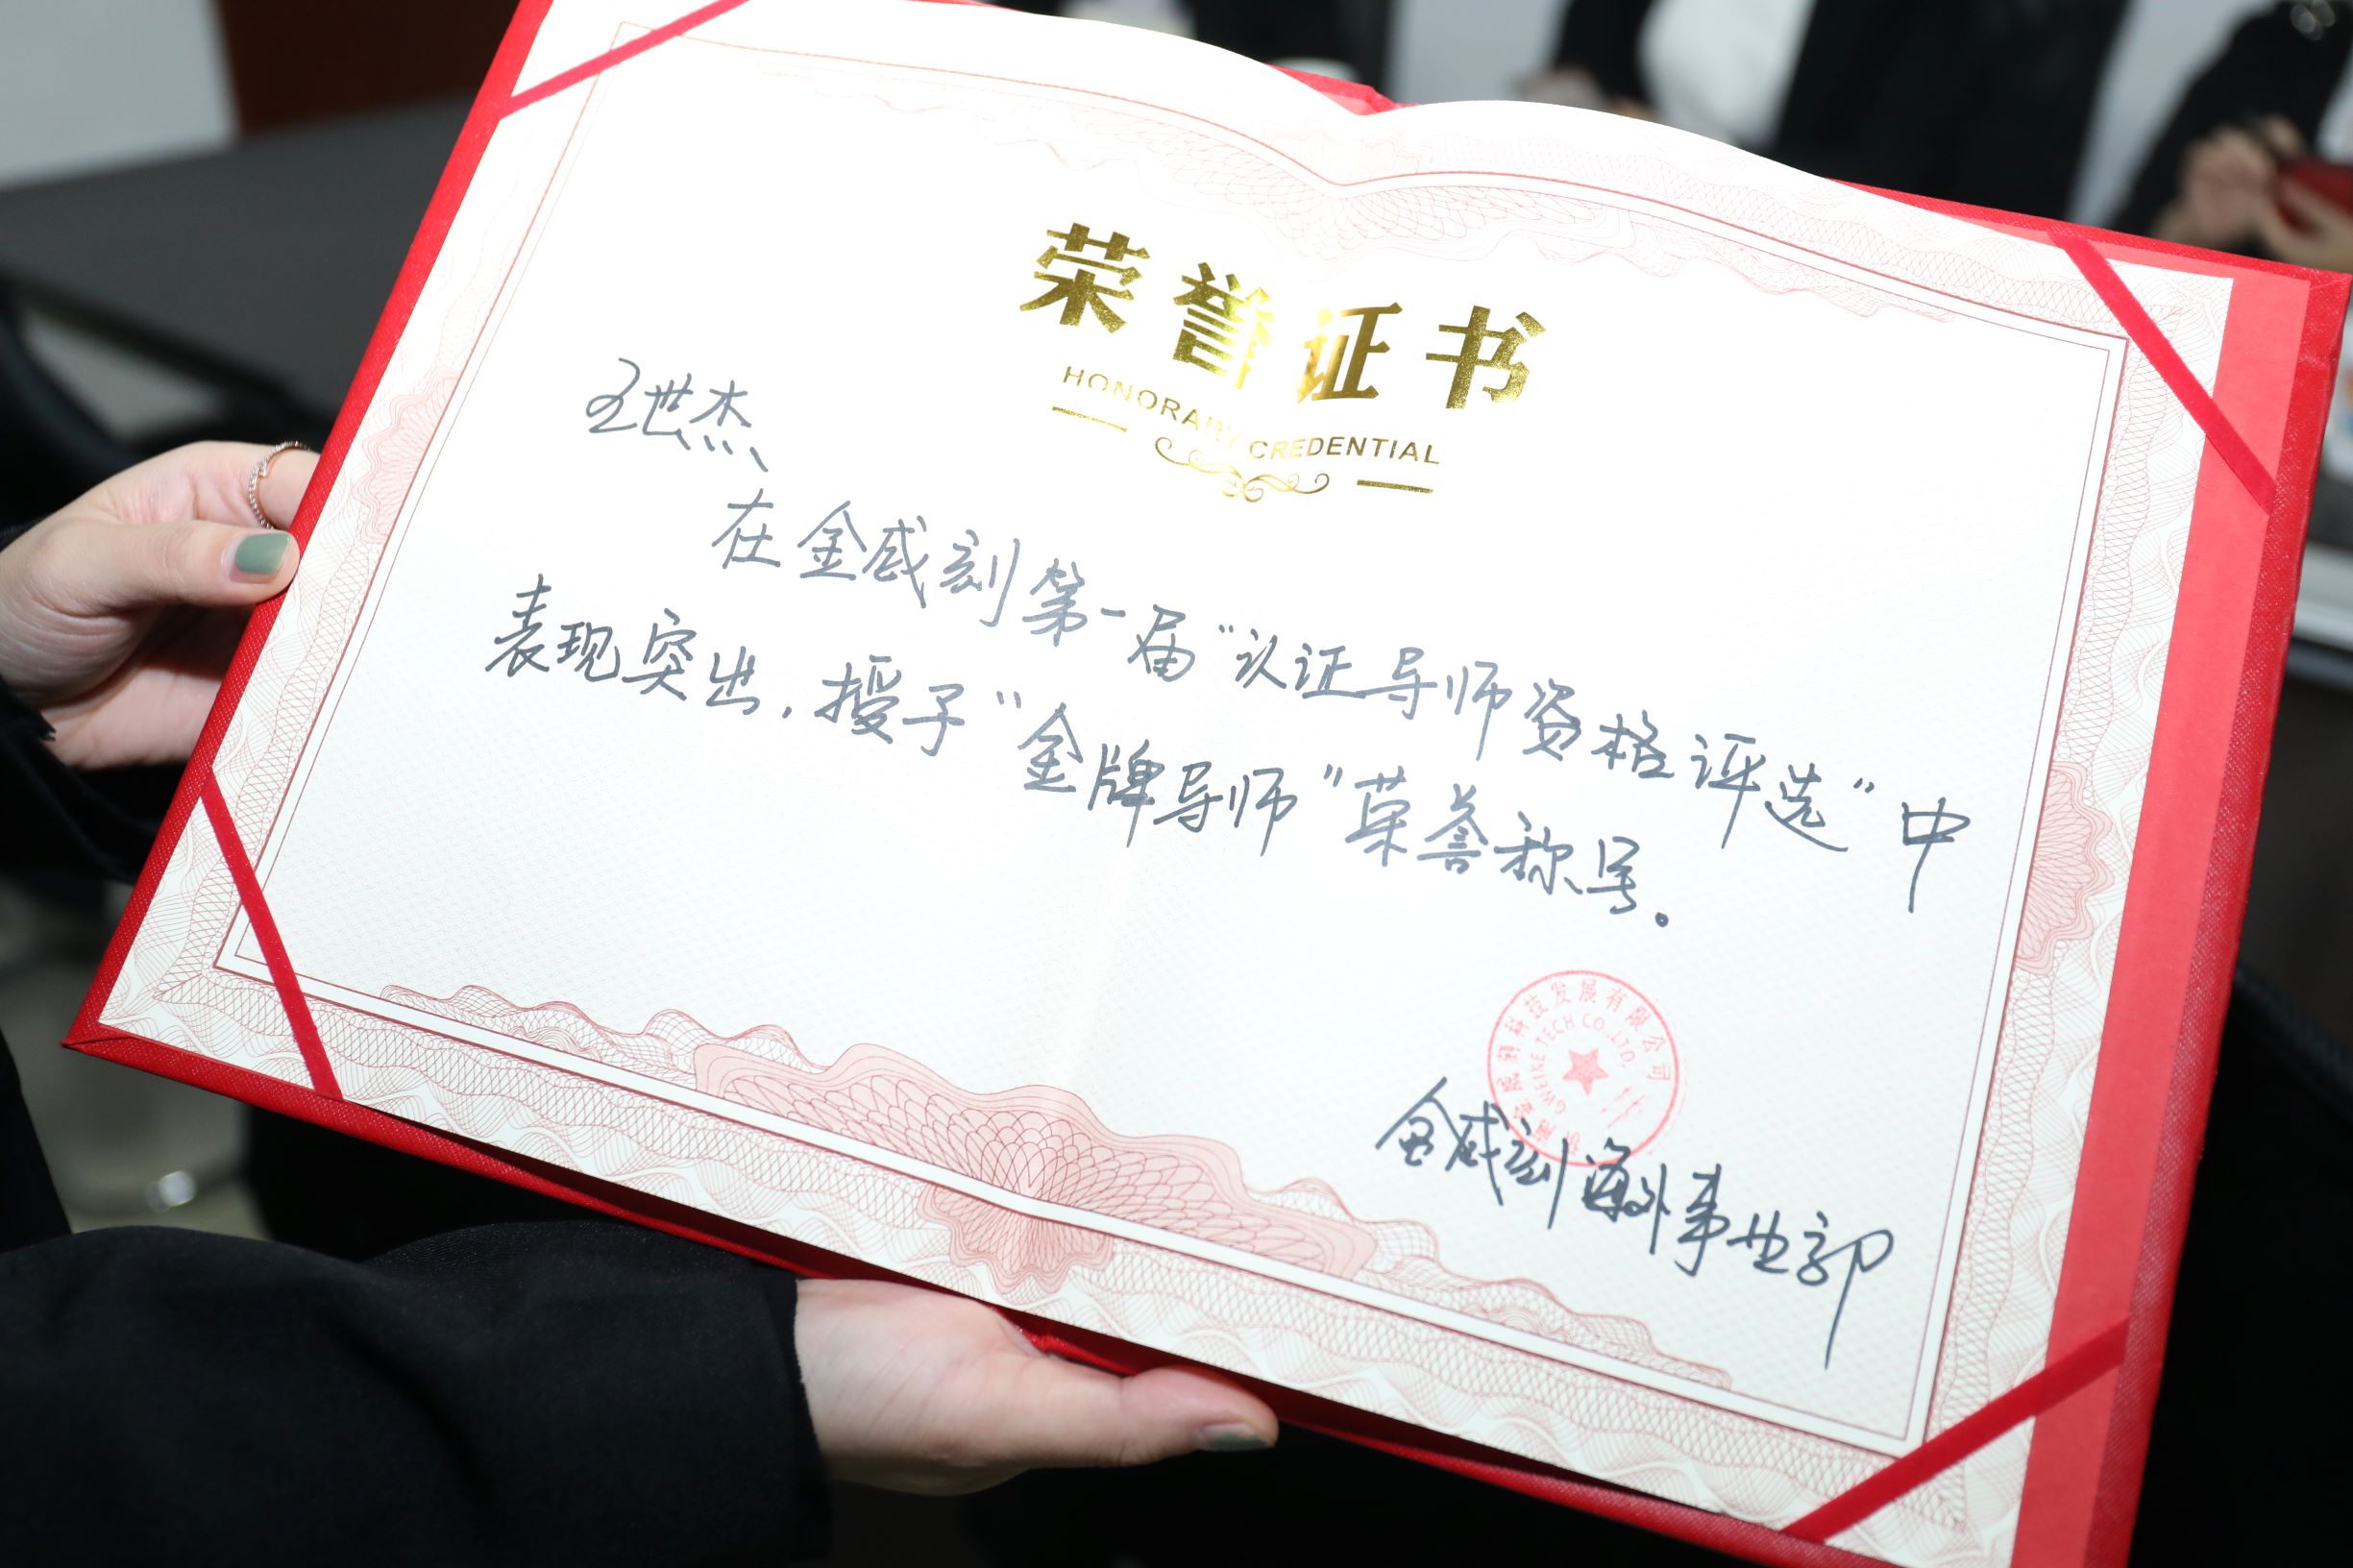 荣誉证书
HONORARY CREDENTIAL
王世杰
在金威刻第一届“认证导师资格评选”中
表现突出,授予“金牌导师”荣誉称号。
济南金威刻科技发展有限公司
GWEIKE TECH CO.,LTD.
金威刻海外事业部